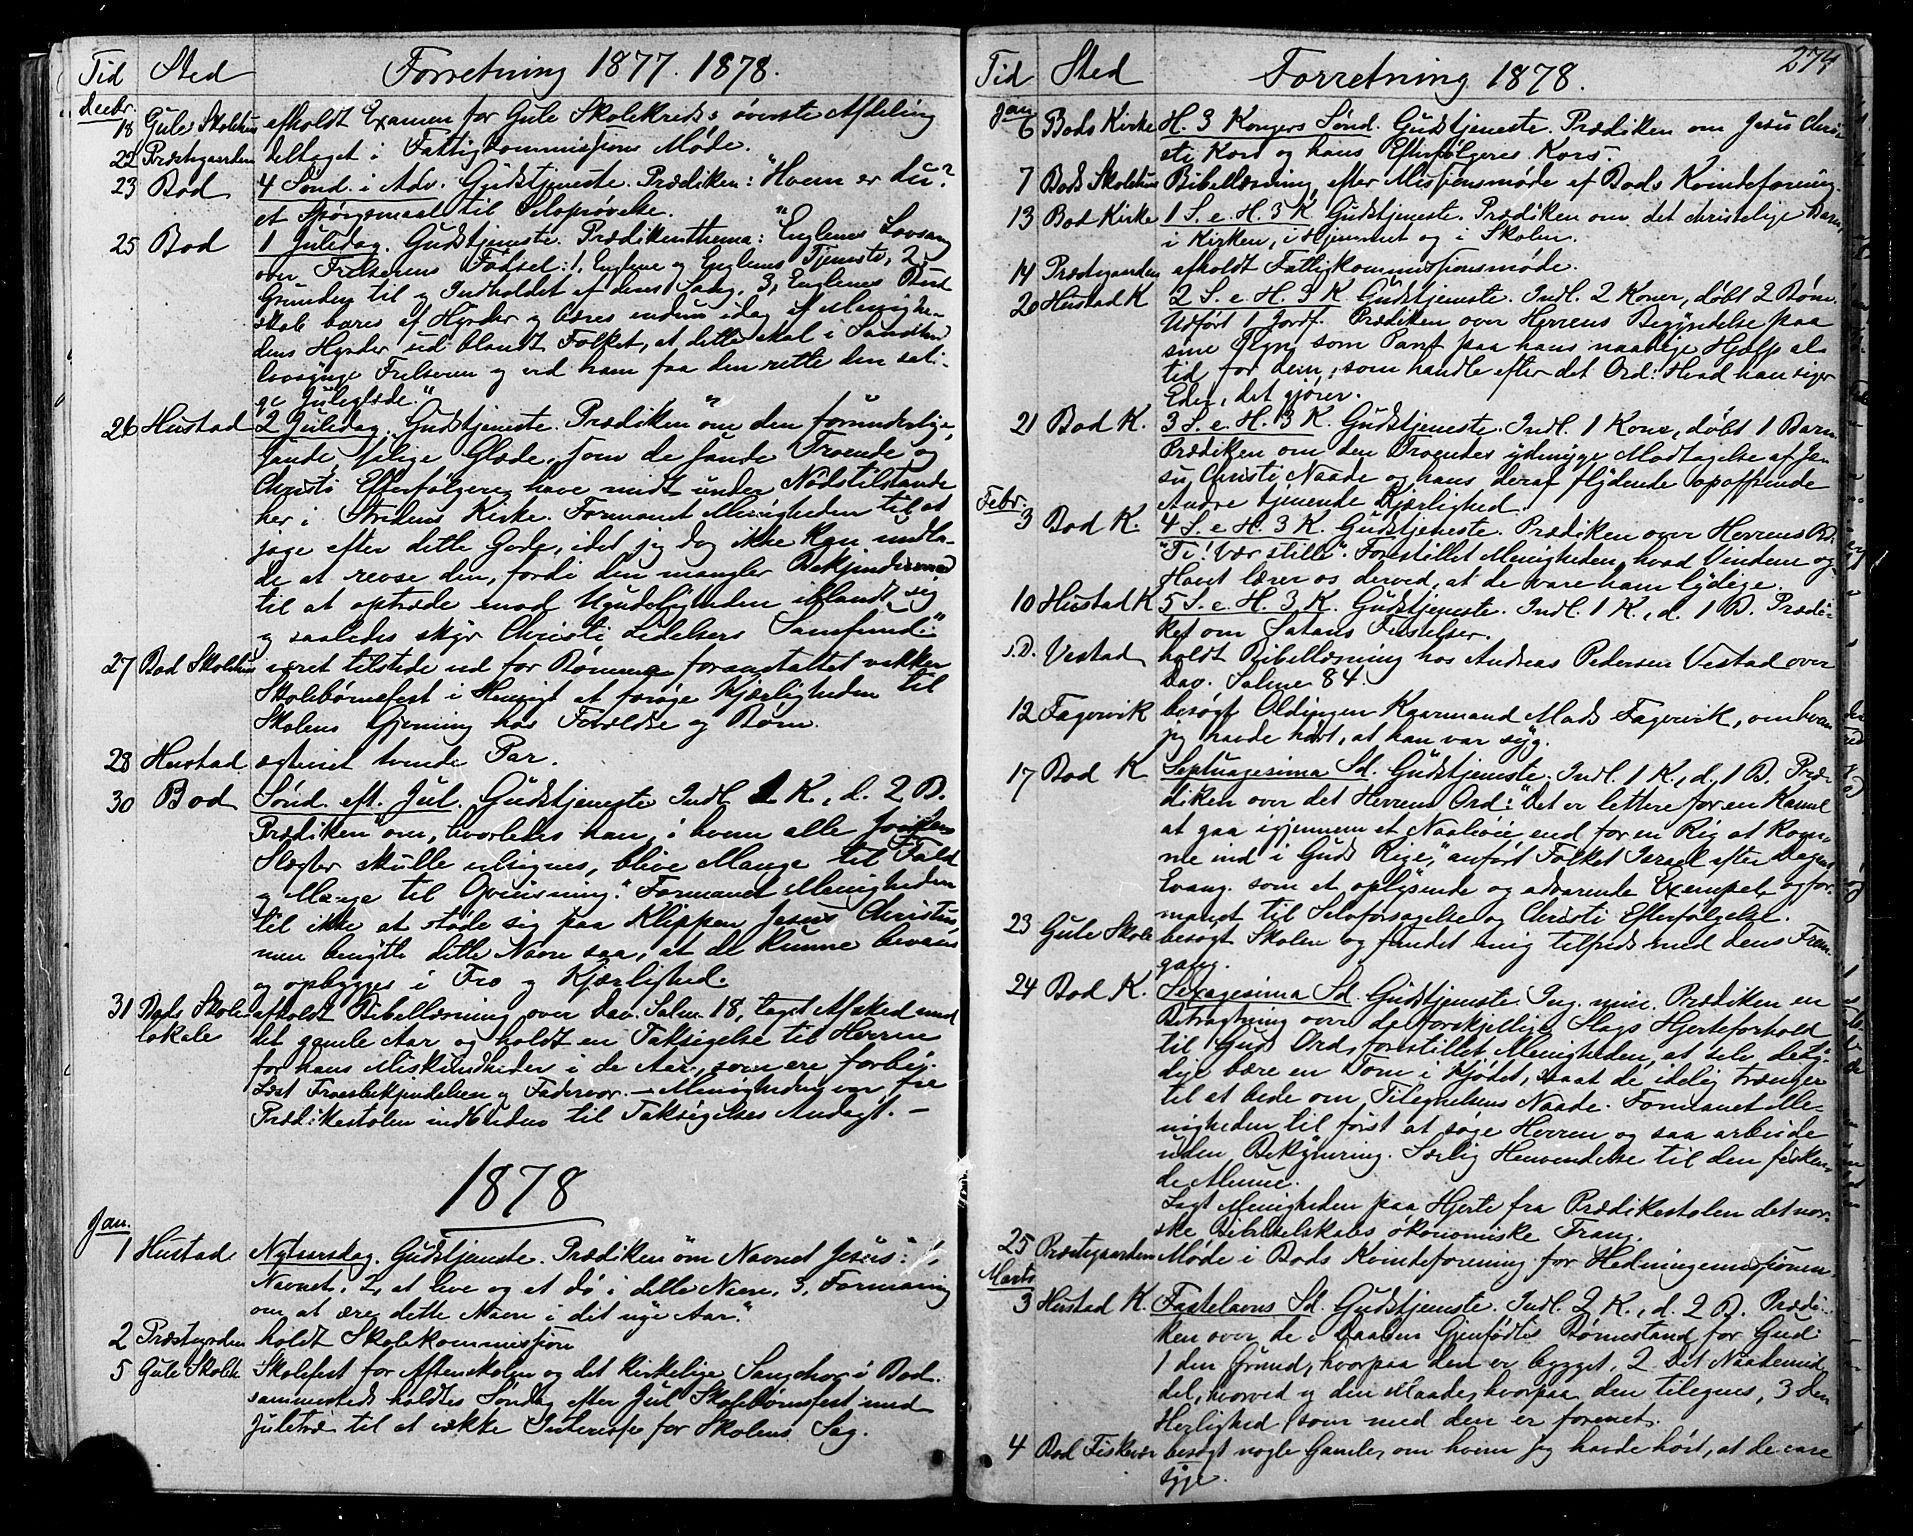 Tid Sted Forretning 1877. 1878.
Decbr.
18 Gule Skolehus afholdt Examen for Gule Skolekreds's øverste Afdeling
22 Præstegaarden deltaget i Fattigkommissions Møde.
23 Bod 4 Sønd. i Adv. Gudstjeneste. Prædiken: "Hvem er du?
et Spørgsmaal til Selvprøvelse.
25 Bod 1 Juledag. Gudstjeneste. Prædikenthema: "Englenes Lovsang
over Frelserens Fødsel: 1, Englene og Englens Tjeneste, 2,
Grunden til og Indholdet af deres Sang, 3, Englenes Bud-
skab bæres af Hyrder og bæres endnu idag af Menighe-
dens Hyrder ud blandt Folket, at dette skal i Sandhed
lovsynge Frelseren og ved ham faa den rette den sali-
ge Juleglæde."
26 Hustad 2 Juledag. Gudstjeneste. Prædiken "om den forunderlige,
sande, salige Glæde, som de sande Troende og
Christi Efterfølgere have midt under Nødstilstande
her i Stridens Kirke. Formanet Menigheden til at
jage efter dette Gode, idet jeg dog ikke kan undla-
de at revse den, fordi den mangler Bekjendermod
til at optræde mod Ugudeligheden iblandt sig
og saaledes skyr Christi Lidelsers Samfund."
27 Bod Skolehus været tilstede ved for Børnene foranstaltet vakker
Skolebørnefest i Hensigt at forøge Kjærligheden til
Skolens Gjerning hos Forældre og Børn.
28 Hustad ægteviet tvende Par.
30 Bod Sønd. eft. Jul. Gudstjeneste Indl. 1 K., d. 2 B.
Prædiken "om, hvorledes han, i hvem alle Jordens
Slægter skulle velsignes, blive Mange til Fald
og Mange til Opreisning." Formanet Menigheden
til ikke at støde sig paa Klippen Jesus Christus,
men benytte dette Navn saa, at de kunne bevares
og opbygges i Tro og Kjærlighed.
31 Bods Skole- afholdt Bibellæsning over Dav. Salme 18, taget Afsked med
lokale det gamle Aar og holdt en Taksigelse til Herren
for hans Miskundheder i de Aar, som ere forbi.
Læst Troesbekjendelsen og Fadervor. – Menigheden var fra
Prædikestolen indbuden til Taksigelses Andagt. –
1878
Jan.
1 Hustad Nytaarsdag. Gudstjeneste. Prædiken "om Navnet Jesus": 1,
Navnet, 2, at leve og at dø i dette Navn, 3, Formaning
om at ære dette Navn i det nye Aar."
2 Præstegaarden holdt Skolekommission
5 Gule Skolehs Skolefest for Aftenskolen og det kirkelige Sangchor i Bod.
sammesteds holdtes Søndag efter Jul Skolebørnsfest med
Juletræ til at vække Interesse for Skolens Sag.
Tid Sted Forretning 1878. 274
Jan
6 Bods Kirke H. 3 Kongers Sønd. Gudstjeneste. Prædiken om Jesu Chri-
sti Kors og hans Efterfølgeres Kors.
7 Bods Skolehus Bibellæsning efter Missionsmøde af Bods Kvindeforening.
13 Bod Kirke 1 S. e. H. 3 K. Gudstjeneste. Prædiken om det christelige Barn,
i Kirken, i Hjemmet og i Skolen.
14 Præstegaarden afholdt Fattigkommissionsmøde.
20 Hustad K 2 S. e. H. 3 K. Gudstjeneste. Indl. 2 Koner, døbt 2 Børn.
Udført 1 Jordf. Prædiken over Herrens Begyndelse paa
sine Tegn som Pant paa hans naadige Hjælp al-
tid for dem, som handle efter det Ord: Hvad han siger
Eder, det gjører.
21 Bod K. 3 S. e. H. 3 K. Gudstjeneste. Indl. 1 Kone, døbt 1 Barn
Prædiken om den Troendes ydmyge Modtagelse af Je-
su Christi Naade og hans deraf flydende opoffrende
Andre tjenende Kjærlighed.
Febr.
3 Bod K. 4 S. e. H. 3 K. Gudstjeneste. Prædiken over Herrens B.
"Ti! Vær stille". Forestillet Menigheden, hvad Vinden og
Havet lærer os derved, at de vare ham lydige.
10 Hustad K 5 S. e. H. 3 K. Gudstjeneste. Indl. 1 K., d. 1 B. Prædi-
ket om Satans Fristelser.
s.D. Vestad holdt Bibellæsning hos Andreas Pedersen Vestad over
Dav. Salme 84.
12 Fagervik besøgt Oldingen Kaarmand Mads Fagervik, om hvem
jeg havde hørt, at han var syg.
17 Bod K Septuagesima Sd. Gudstjeneste. Indl. 1 K., d. 1 B. Præ-
diken over det Herrens Ord: "Det er lettere for en Kamel
at gaa igjennem et Naaleøie end for en Rig at kom-
me ind i Guds Rige," anført Folket Israel efter Dagens
Evang. som et oplysende og advarende Exempel og for-
manet til Selvforsagelse og Christi Efterfølgelse.
23 Gule Skole besøgt Skolen og fundet mig tilfreds med dens Frem-
gang.
24 Bod K. Sexagesima Sd. Gudstjeneste. Ing. min. Prædiken en
Betragtning over de forskjellige Slags Hjerteforhold
til Guds Ord, forestillet Menigheden, at selv de
bære en Torn i Kjødet, saa at de idelig trænger
til at bede om Tilegnelsens Naade. Formanet Me-
nigheden til først at søge Herren og saa arbeide
uden Bekymring. Særlig Henvendelse til den fisken-
de Almue.
Lagt Menigheden paa Hjerte fra Prædikestolen det nor-
ske Bibelselskabs økonomiske Trang.
25 Præstegaarden Møde i Bods Kvindeforening for Hedningemissionen.
Marts
3 Hustad K. Fastelavns Sd. Gudstjeneste. Indl. 2 K., d. 2 B. Prædi-
ken over de i Daaben Gjenfødtes Børnestand for Gud:
1 den Grund, hvorpaa den er bygget, 2 Det Naademid-
del, hvorved og den Maade, hvorpaa den tilegnes, 3 Den
Herlighed, som med den er forenet.
4 Bod Fiskevær besøgt nogle Gamle, om hvem jeg havde hørt, at de vare
syge.